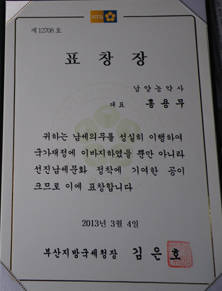 제 12708 호
표 창 장
남양농약사
대표 홍용무
귀하는 납세의무를 성실히 이행하여
국가재정에 이바지하였을 뿐만 아니라
선진납세문화 정착에 기여한 공이
크므로 이에 표창합니다
2013년 3월 4일
부산지방국세청장 김은호